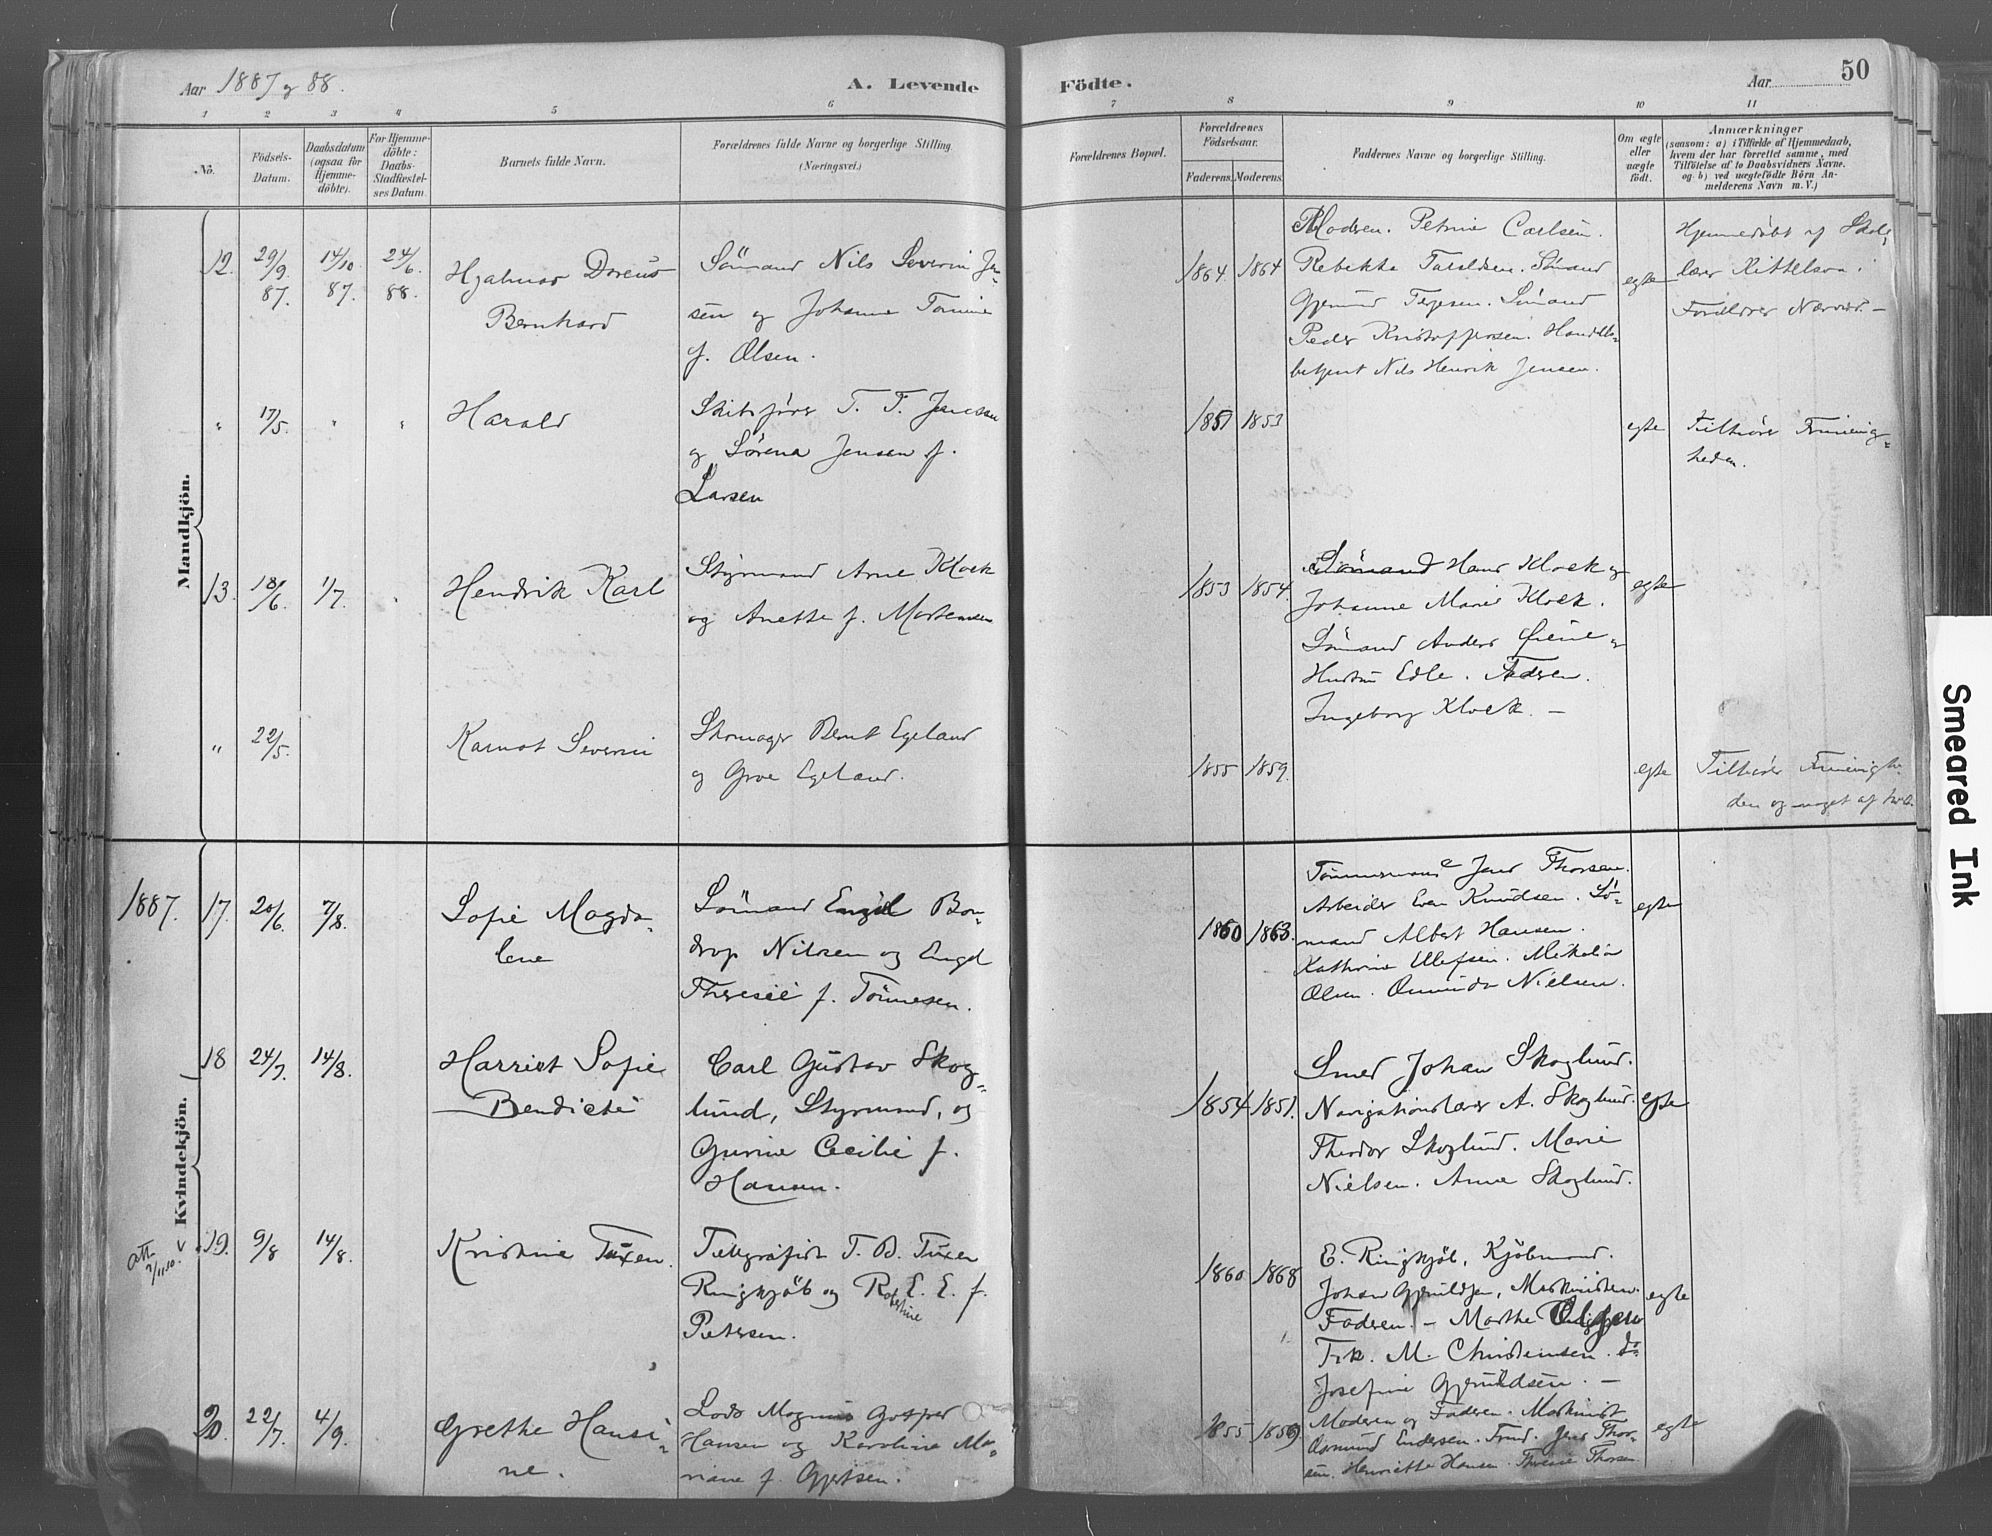 Aar 1887 og 88.
A. Levende
Födte.
Aar
50
1 2 3 4 5 6 7 8 9 10 11
No.
Födsels-
Datum.
Daabsdatum
(ogsaa for
Hjemme-
döbte).
For Hjemme-
döbte:
Daabs-
Stadfæstel-
ses Datum.
Barnets fulde Navn.
Forældrenes fulde Navne og borgerlige Stilling
(Næringsvei.)
Forældrenes Bopæl.
Forældrenes
Födselsaar.
Faderens. Moderens.
Faddernes Navne og borgerlige Stilling.
Om ægte
eller
uægte
födt.
Anmærkninger
(saasom: a) i Tilfælde af Hjemmedaab,
hvem der har forrettet samme, med
Tilföielse af to Daabsvidners Navne.
og b) ved uægtefödte Börn An-
melderens Navn m. V.)
Mandkjön.
12. 29/9. 87. 14/10 87. 24/6. 88.
Hjalmar
Bernhard
Sömand Nils Severin Jen-
sen og Johanne Tomine
f. Olsen.
1864 1864
Moderen. Petrine Carlsen.
Rebekka Taraldsen. Sömand
Gjermund Terjesen. Sömand
Peder Kristoffersen. Handels-
betjent Nils Henrik Jensen.
egte
Hjemmedöbt af Skole-
lærer Kittelson.
Forældrene
" 17/5. " "
Harald
Skibsförer T. T. Jenssen
og Sörena Jensen f.
Larsen
1851 1853
egte
Tilhörer Frimenig-
heden.
13. 18/6. 1/7.
Hendrik Karl
Styrmand Arne Klock
og Anette f. Mortensen
1853 1854.
Sömand Hans Klock og
Johanne Marie Klock.
Sömand Anders
Hustru Edle. Faderen.
Ingeborg Klock. —
egte
" 22/5.
Severin
Skomager Bernt Egeland
og Groe Egeland.
1855 1859.
egte
Tilhörer Frimenighe-
den og
1887.
Kvindekjön.
17. 20/6. 7/8.
Sofie Magda-
lene
Sömand Engel Bon-
drop Nilsen og Engel
Theresie f. Tönnesen.
1860 1863.
Tömmermand Jens Thorsen.
Arbeider Even Knudsen. Sö-
mand Albert Hansen.
Kathrine Ellefsen.
Olsen. Nielsen.
egte
18 24/7. 14/8.
Harriet Sofie
Bendicte
Carl Gustav Skog-
lund, Styrmand, og
Gurine Cecilie f.
Hansen.
1854 1851.
Smed Johan Skoglund.
Navigationslærer A. Skoglund.
Theodor Skoglund. Marie
Nielsen. Anne Skoglund.
egte
att.
7/11.10. v
19. 9/8 14/8.
Kristine Tuxen.
Telegrafist T. B. Tuxen
Ringkjöb og R E. E. f.
Petersen.
1860 1868
E. Ringkjöb, Kjöbmand.
Johan Gjeruldsen, Maskinisten.
Faderen. — Marthe
Frk. M. Christensen. do.
Josefine Gjeruldsen. —
egte
20. 22/7. 4/9.
Grethe Hansi-
ne.
Lods Magnus Gotfred
Hansen og Karoline Ma-
riane f. Gjertsen.
1855 1859
Moderen og Faderen. Maskinist
Osmund Endersen. Fru Jens Thor-
sen. Henriette Hansen. Thresie Thorsen
egte
Smeared Ink